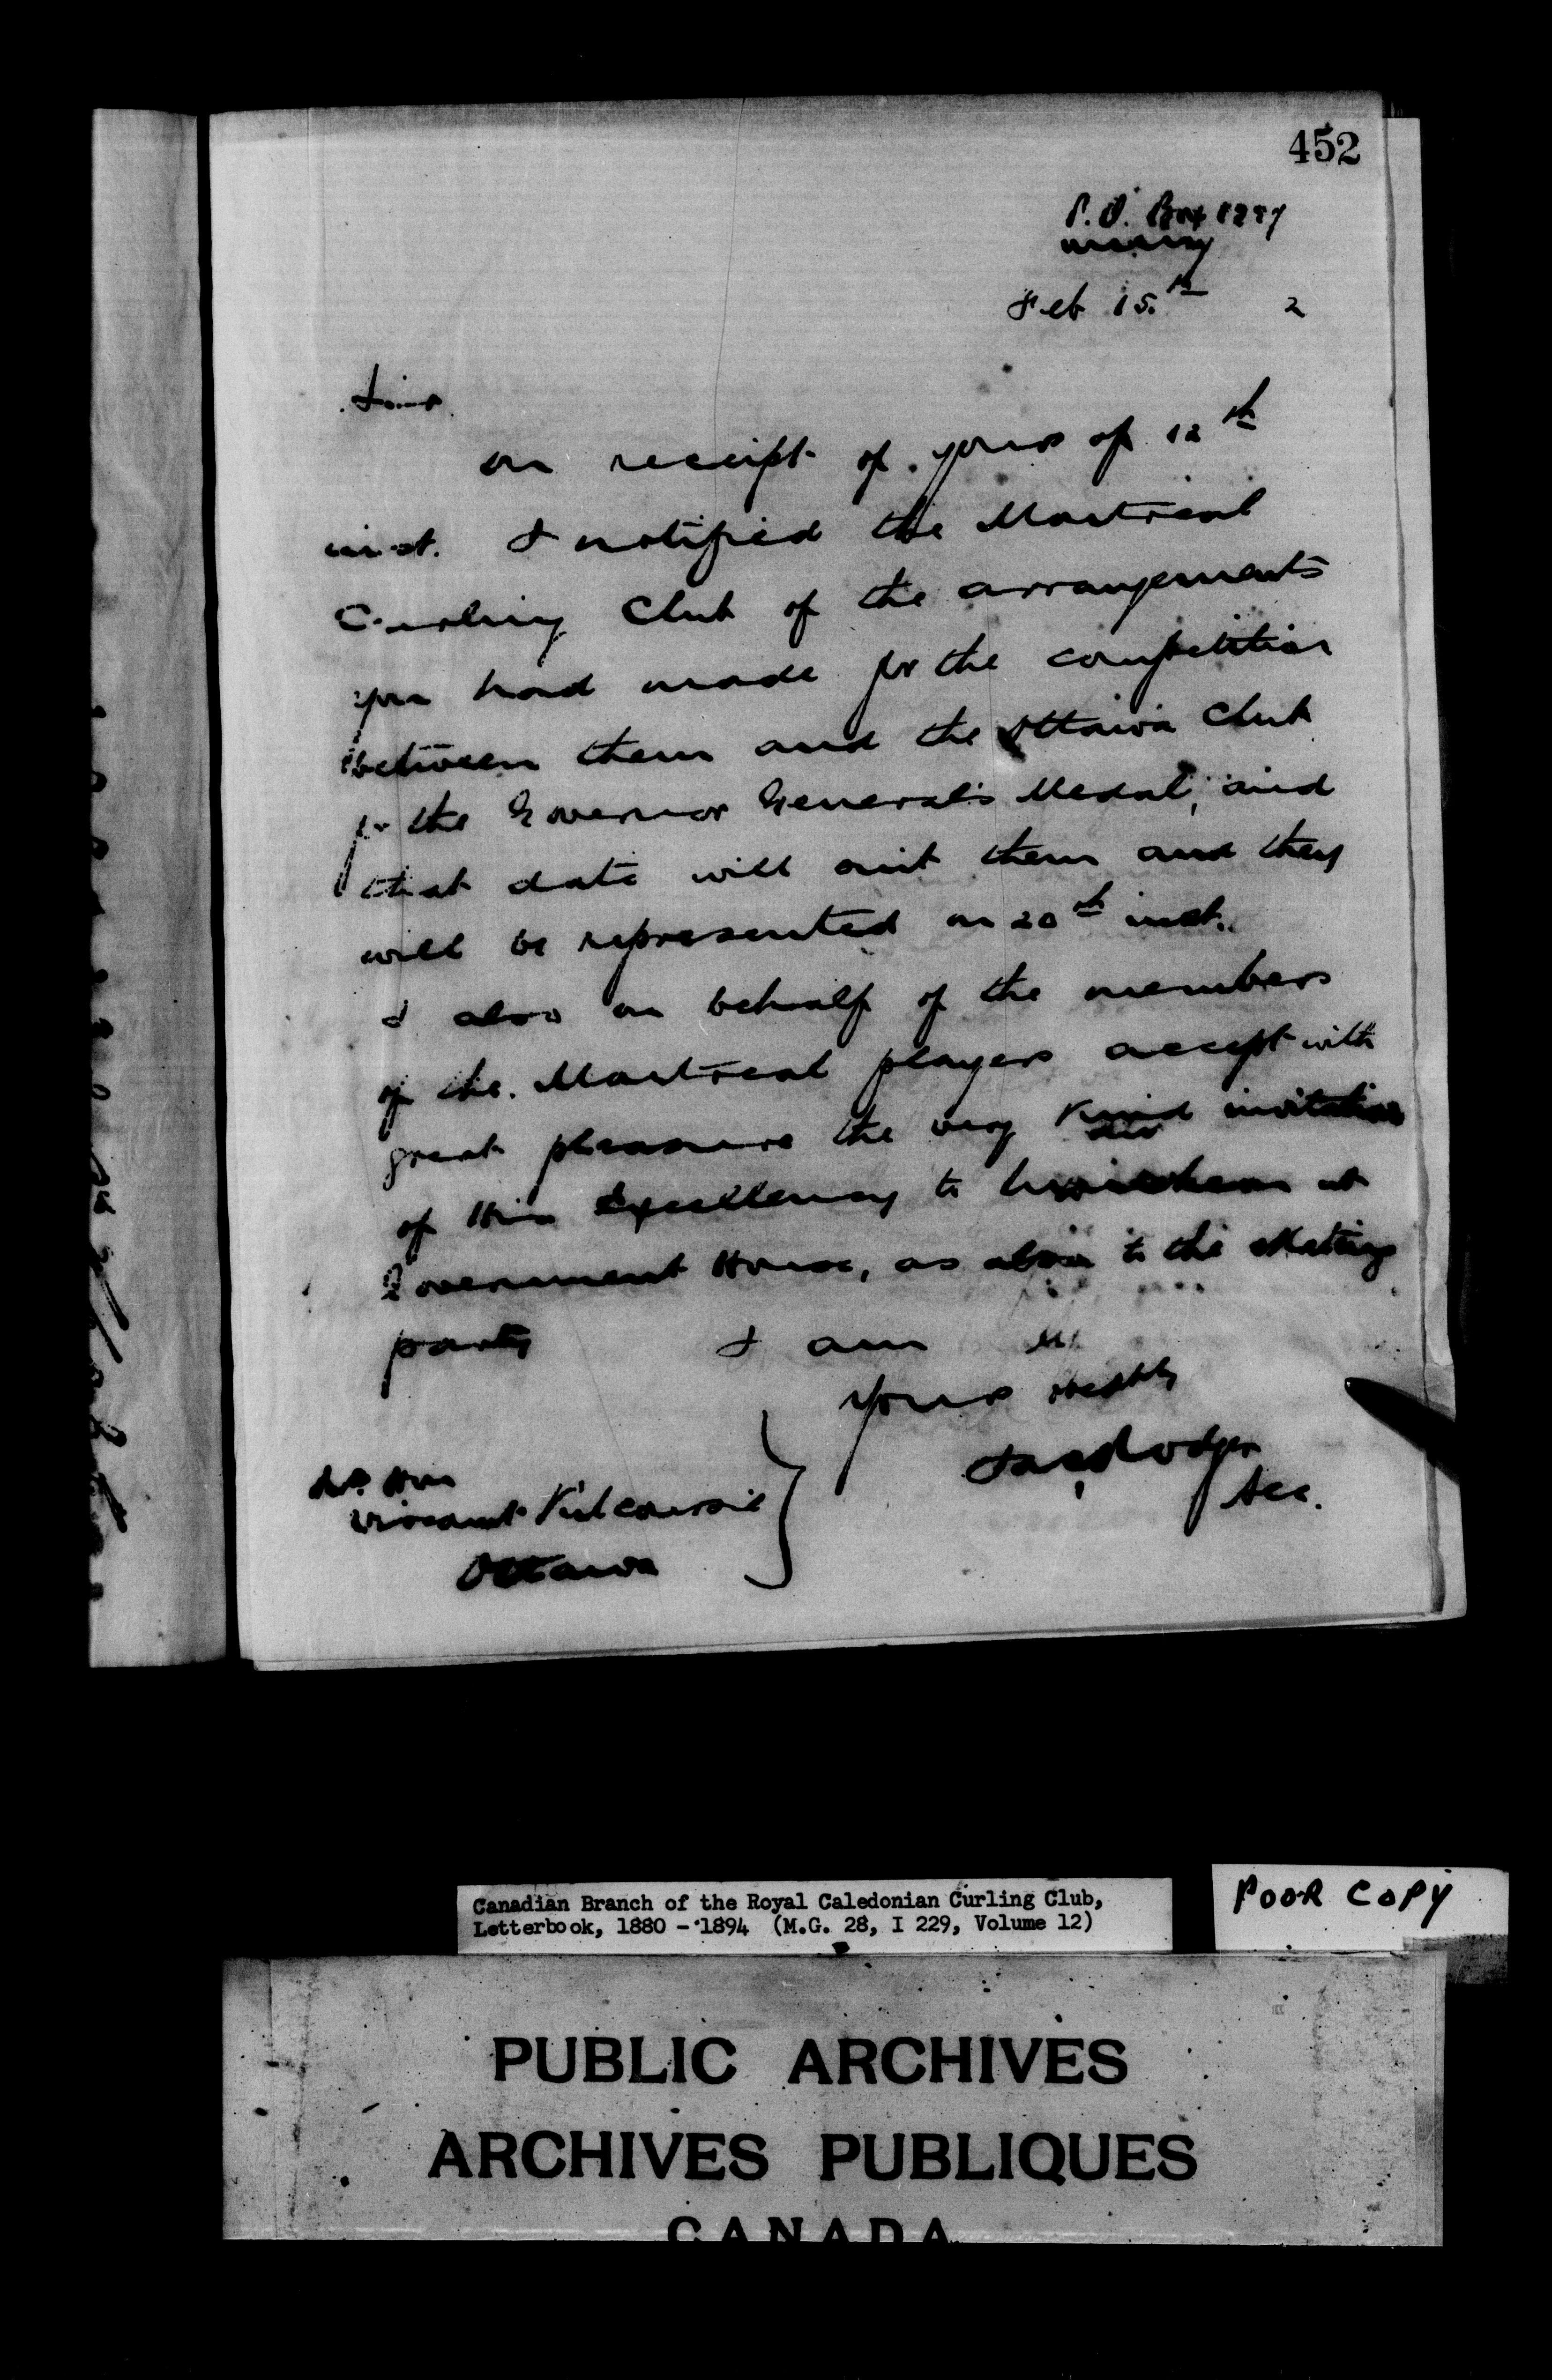 452
P.O. Box
Feb 15th 2
on receipt of yours of 12th
inst. I notified the Montreal
Curling Club of the arrangements
you had made for the competition
between them and the Ottawa Club
for the Governor General's Medal, and
that date will suit them and they
will be represented on 20th inst.
I also on behalf of the members
of the Montreal players accept with
great pleasure the very kind invitation
of His Excellency to luncheon at
Government House, as also to the skating
party I am
Yours respty
Jas Rodger
Sec.
Hon
Viscount Kilcoursie
Ottawa
Canadian Branch of the Royal Caledonian Curling Club,
Letterbook, 1880 - 1894 (M.G. 28, I 229, Volume 12)
POOR COPY
PUBLIC ARCHIVES
ARCHIVES PUBLIQUES
CANADA